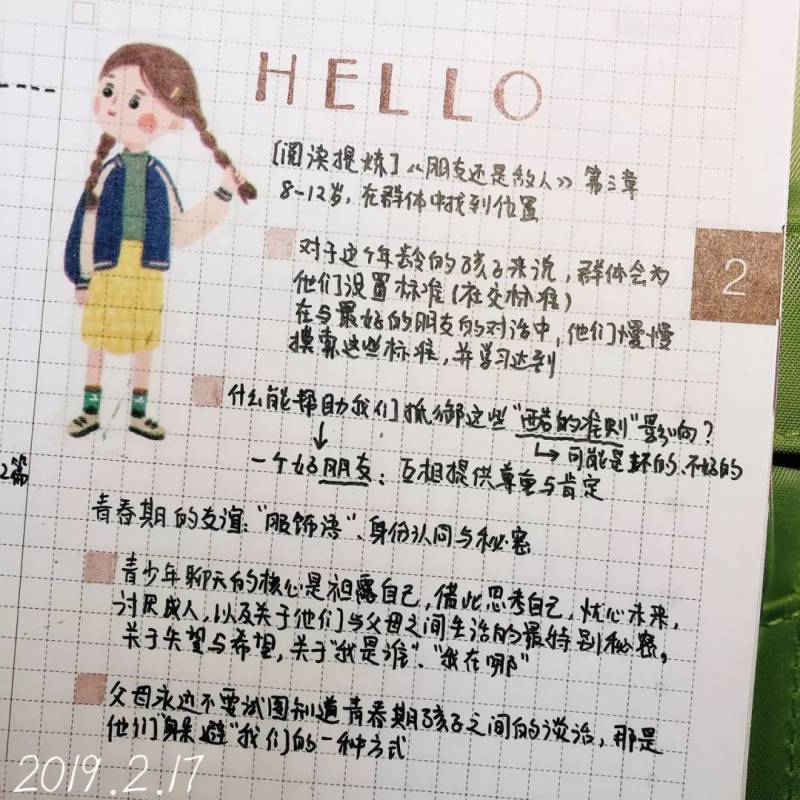 HELLO
[阅读提炼]《朋友还是敌人》第三章
8-12岁，在群体中找到位置
2
对于这个年龄的孩子来说，群体会为
他们设置标准(社交标准)
在与最好的朋友的对话中，他们慢慢
摸索这些标准，并学习达到
什么能帮助我们抵御这些"酷的准则"影响？
↓ ↳可能是坏的、不好的
一个好朋友：互相提供尊重与肯定
2篇
青春期的友谊："服饰语"、身份认同与秘密
青少年聊天的核心是袒露自己，借此思考自己，忧心未来，
讨厌成人，以及关于他们与父母之间生活的最特别秘密，
关于失望与希望，关于"我是谁"、"我在哪"
父母永远不要试图知道青春期孩子之间的谈话，那是
他们"躲避"我们的一种方式
2019.2.17